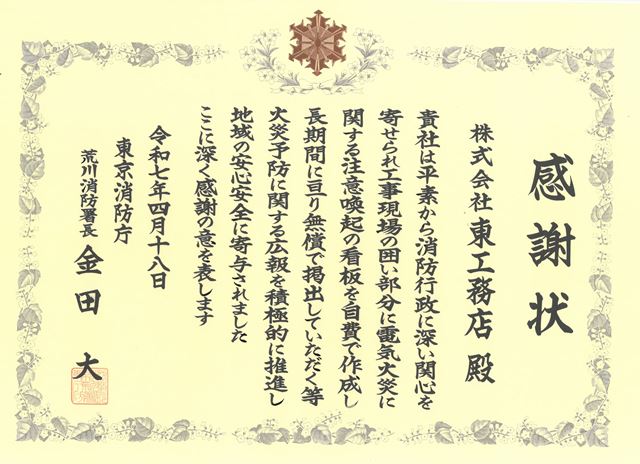 感謝状
株式会社東工務店 殿
貴社は平素から消防行政に深い関心を
寄せられ工事現場の囲い部分に電気火災に
関する注意喚起の看板を自費で作成し
長期間に亘り無償で掲出していただく等
火災予防に関する広報を積極的に推進し
地域の安心安全に寄与されました
ここに深く感謝の意を表します
令和七年四月十八日
東京消防庁
荒川消防署長 金田 大